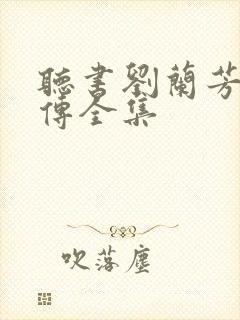 聽書劉蘭芳
傳全集
吹落塵